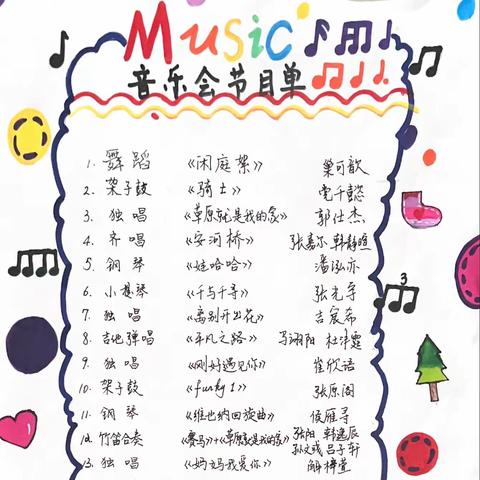 Music
音乐会节目单
1. 舞蹈 《闲庭絮》 巢可歆
2. 架子鼓 《骑士》 党千懿
3. 独唱 《草原就是我的家》 郭仕杰
4. 齐唱 《安河桥》 张嘉尔 韩静暄
5. 钢琴 《娃哈哈》 潘泓亦
6. 小提琴 《千与千寻》 张光宇
7. 独唱 《离别开出花》 吉宸希
8. 吉他弹唱 《平凡之路》 马翊阳
9. 独唱 《刚好遇见你》 崔欣语
10. 架子鼓 《funky1》 张原阁
11. 钢琴 《维也纳回旋曲》 侯雁寻
12. 竹笛合奏 《赛马》+《草原就是我的家》 张阳 韩逸辰
吕子轩
13. 独唱 《妈妈我爱你》
3